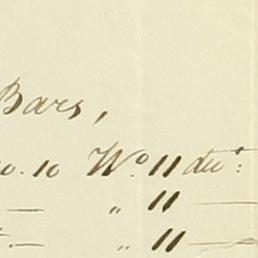 Bars,
o. 10 Wº. 11 dut:
— „ 11 —
— „ 11 —